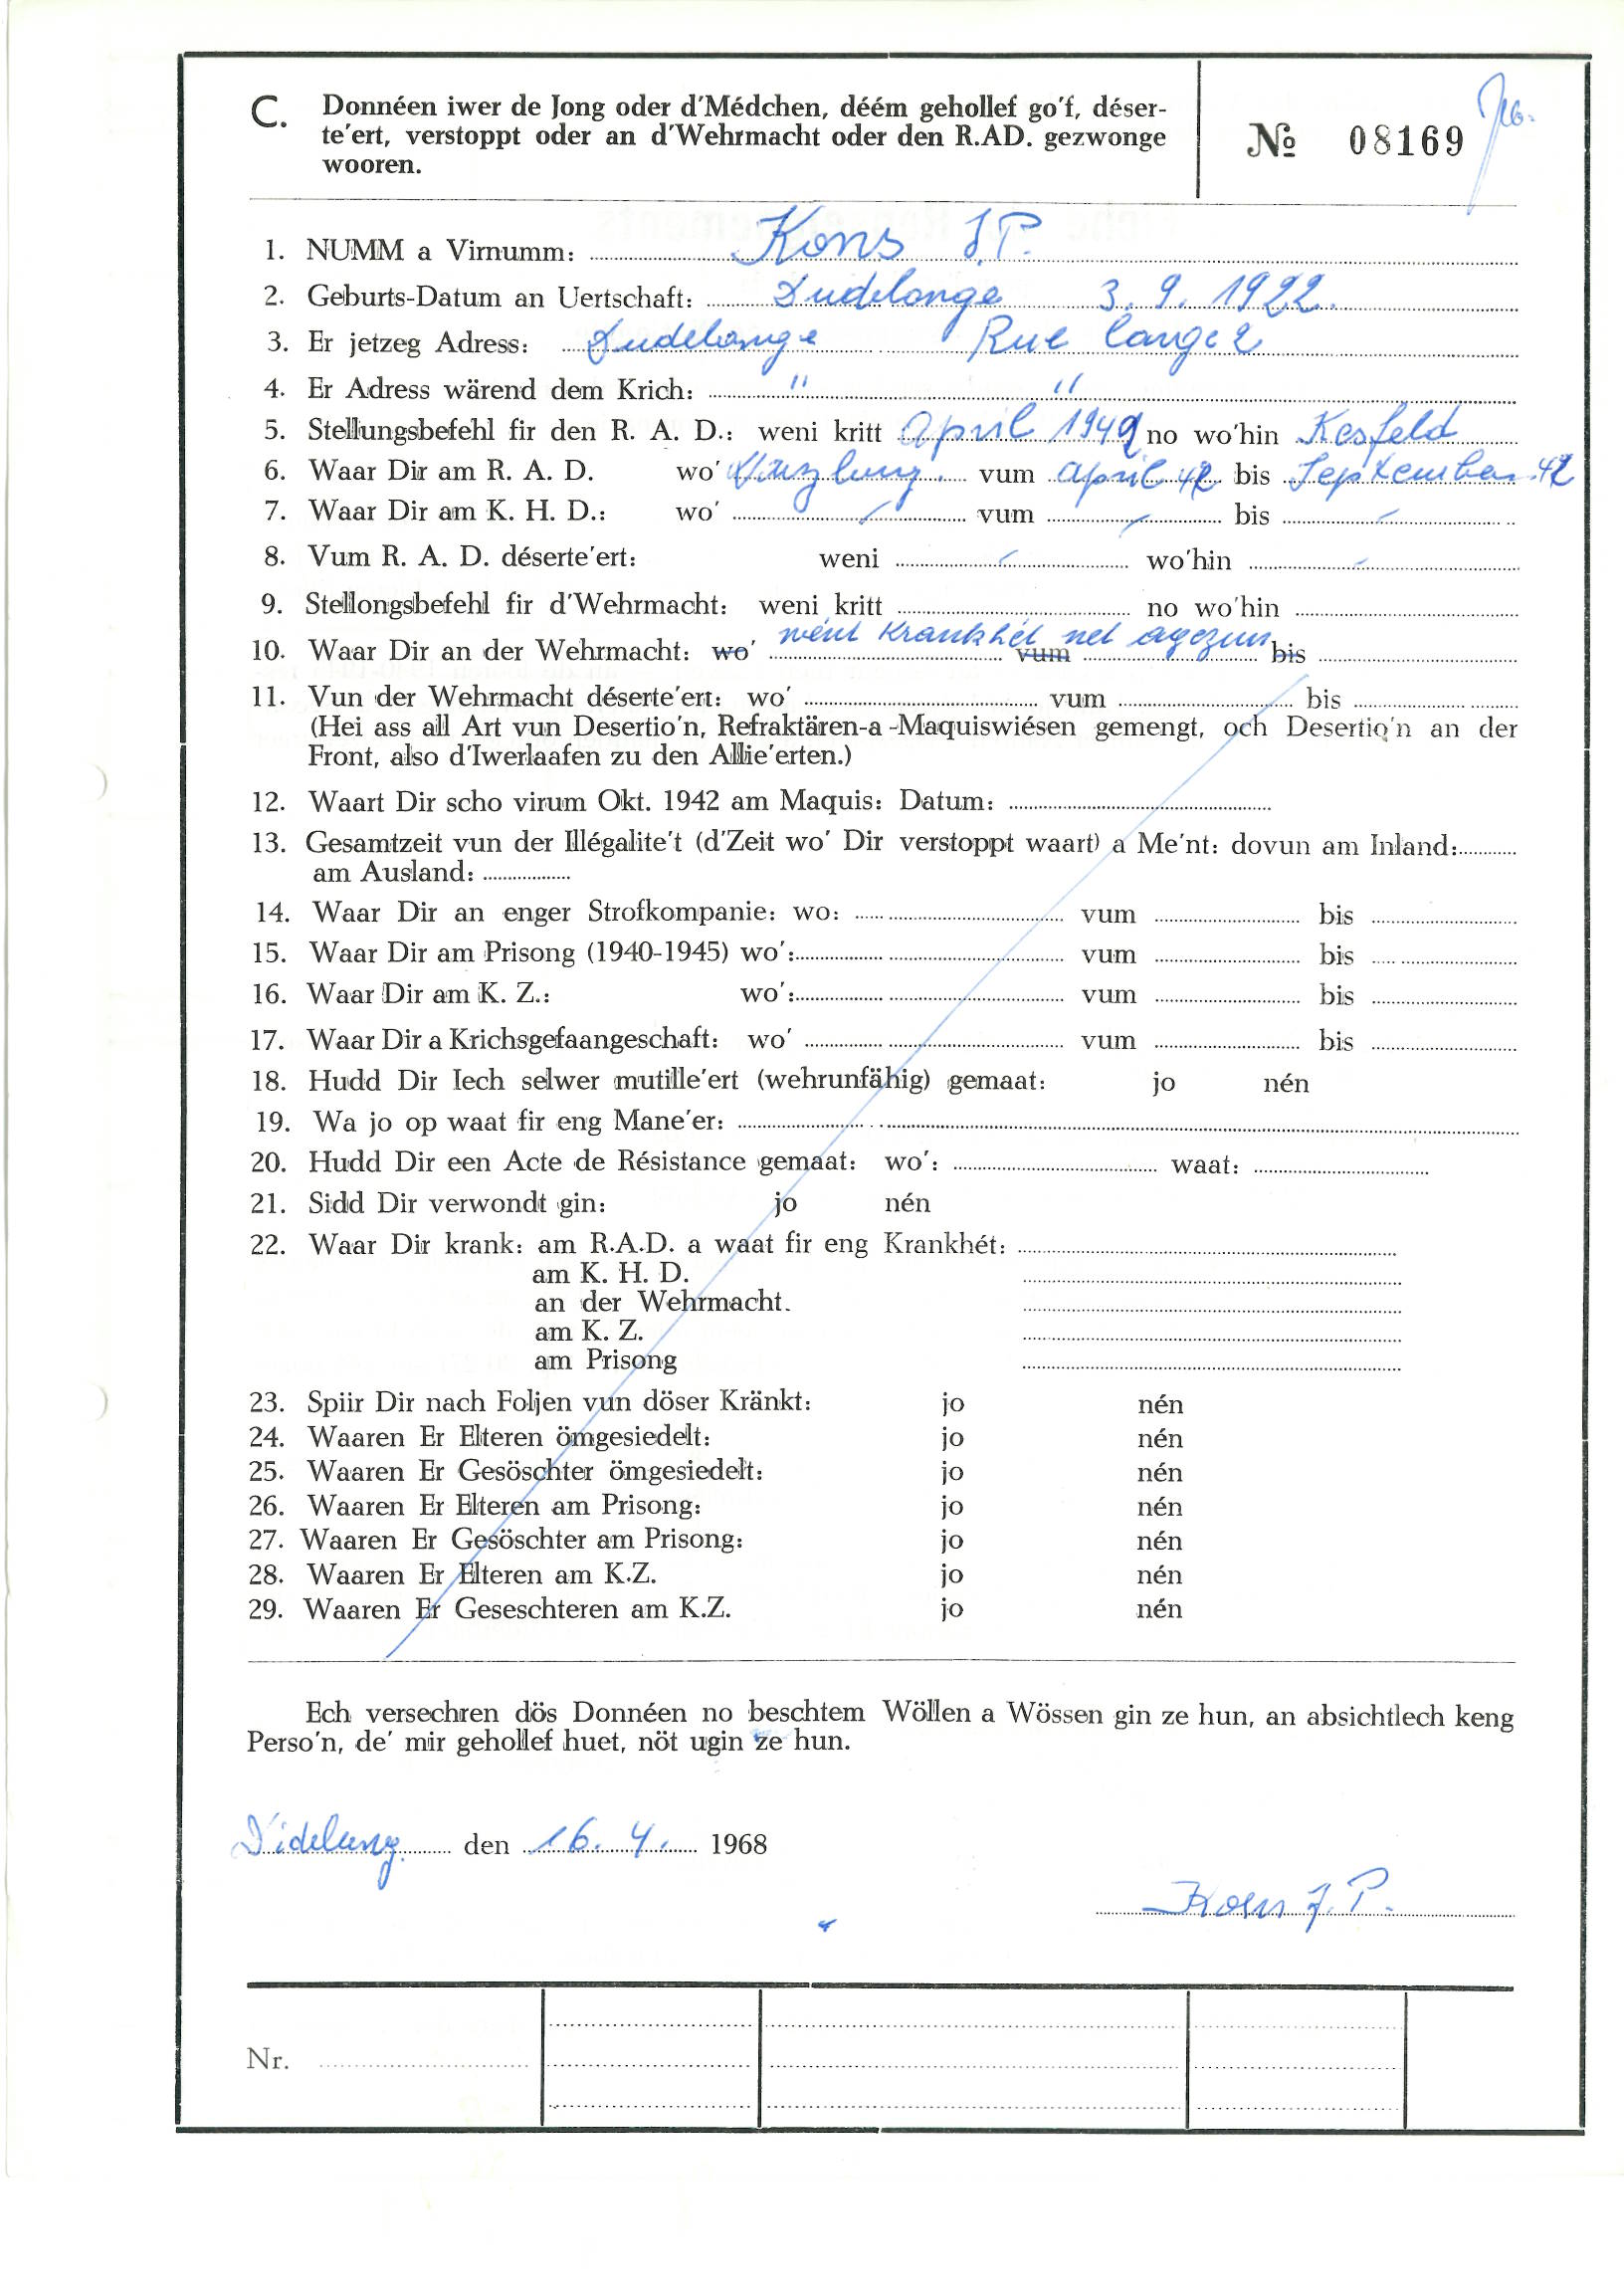 C. Donnéen iwer de Jong oder d'Médchen, déém gehollef go'f, déser-
te'ert, verstoppt oder an d'Wehrmacht oder den R.AD. gezwonge
wooren.
№ 08169
1. NUMM a Virnumm: Kons J.P.
2. Geburts-Datum an Uertschaft: Dudelange 3.9.1922.
3. Er jetzeg Adress: Dudelange Rue
4. Er Adress wärend dem Krich: " "
5. Stellungsbefehl fir den R. A. D.: weni kritt April 1942 no wo'hin Kesfeld
6. Waar Dir am R. A. D. wo' vum April 42 bis September 42
7. Waar Dir am K. H. D.: wo' / vum / bis /
8. Vum R. A. D. déserte'ert: weni / wo'hin /
9. Stellongsbefehl fir d'Wehrmacht: weni kritt no wo'hin
10. Waar Dir an der Wehrmacht: wo' wént Krankhét net agezun vum bis
11. Vun der Wehrmacht déserte'ert: wo' vum bis
(Hei ass all Art vun Desertio'n, Refraktären-a -Maquiswiésen gemengt, och Desertio'n an der
Front, also d'Iwerlaafen zu den Allie'erten.)
12. Waart Dir scho virum Okt. 1942 am Maquis: Datum:
13. Gesamtzeit vun der Illégalite't (d'Zeit wo' Dir verstoppt waart) a Me'nt: dovun am Inland:
am Ausland:
14. Waar Dir an enger Strofkompanie: wo: vum bis
15. Waar Dir am Prisong (1940-1945) wo': vum bis
16. Waar Dir am K. Z.: wo': vum bis
17. Waar Dir a Krichsgefaangeschaft: wo' vum bis
18. Hudd Dir Iech selwer mutille'ert (wehrunfähig) gemaat: jo nén
19. Wa jo op waat fir eng Mane'er:
20. Hudd Dir een Acte de Résistance gemaat: wo': waat:
21. Sidd Dir verwondt gin: jo nén
22. Waar Dir krank: am R.A.D. a waat fir eng Krankhét:
am K. H. D.
an der Wehrmacht.
am K. Z.
am Prisong
23. Spiir Dir nach Foljen vun döser Kränkt: jo nén
24. Waaren Er Elteren ömgesiedelt: jo nén
25. Waaren Er Gesöschter ömgesiedelt: jo nén
26. Waaren Er Elteren am Prisong: jo nén
27. Waaren Er Gesöschter am Prisong: jo nén
28. Waaren Er Elteren am K.Z. jo nén
29. Waaren Er Geseschteren am K.Z. jo nén
Ech versechren dös Donnéen no beschtem Wöllen a Wössen gin ze hun, an absichtlech keng
Perso'n, de' mir gehollef huet, nöt ugin ze hun.
Didelung den 16. 4. 1968
Kons J.P.
Nr.